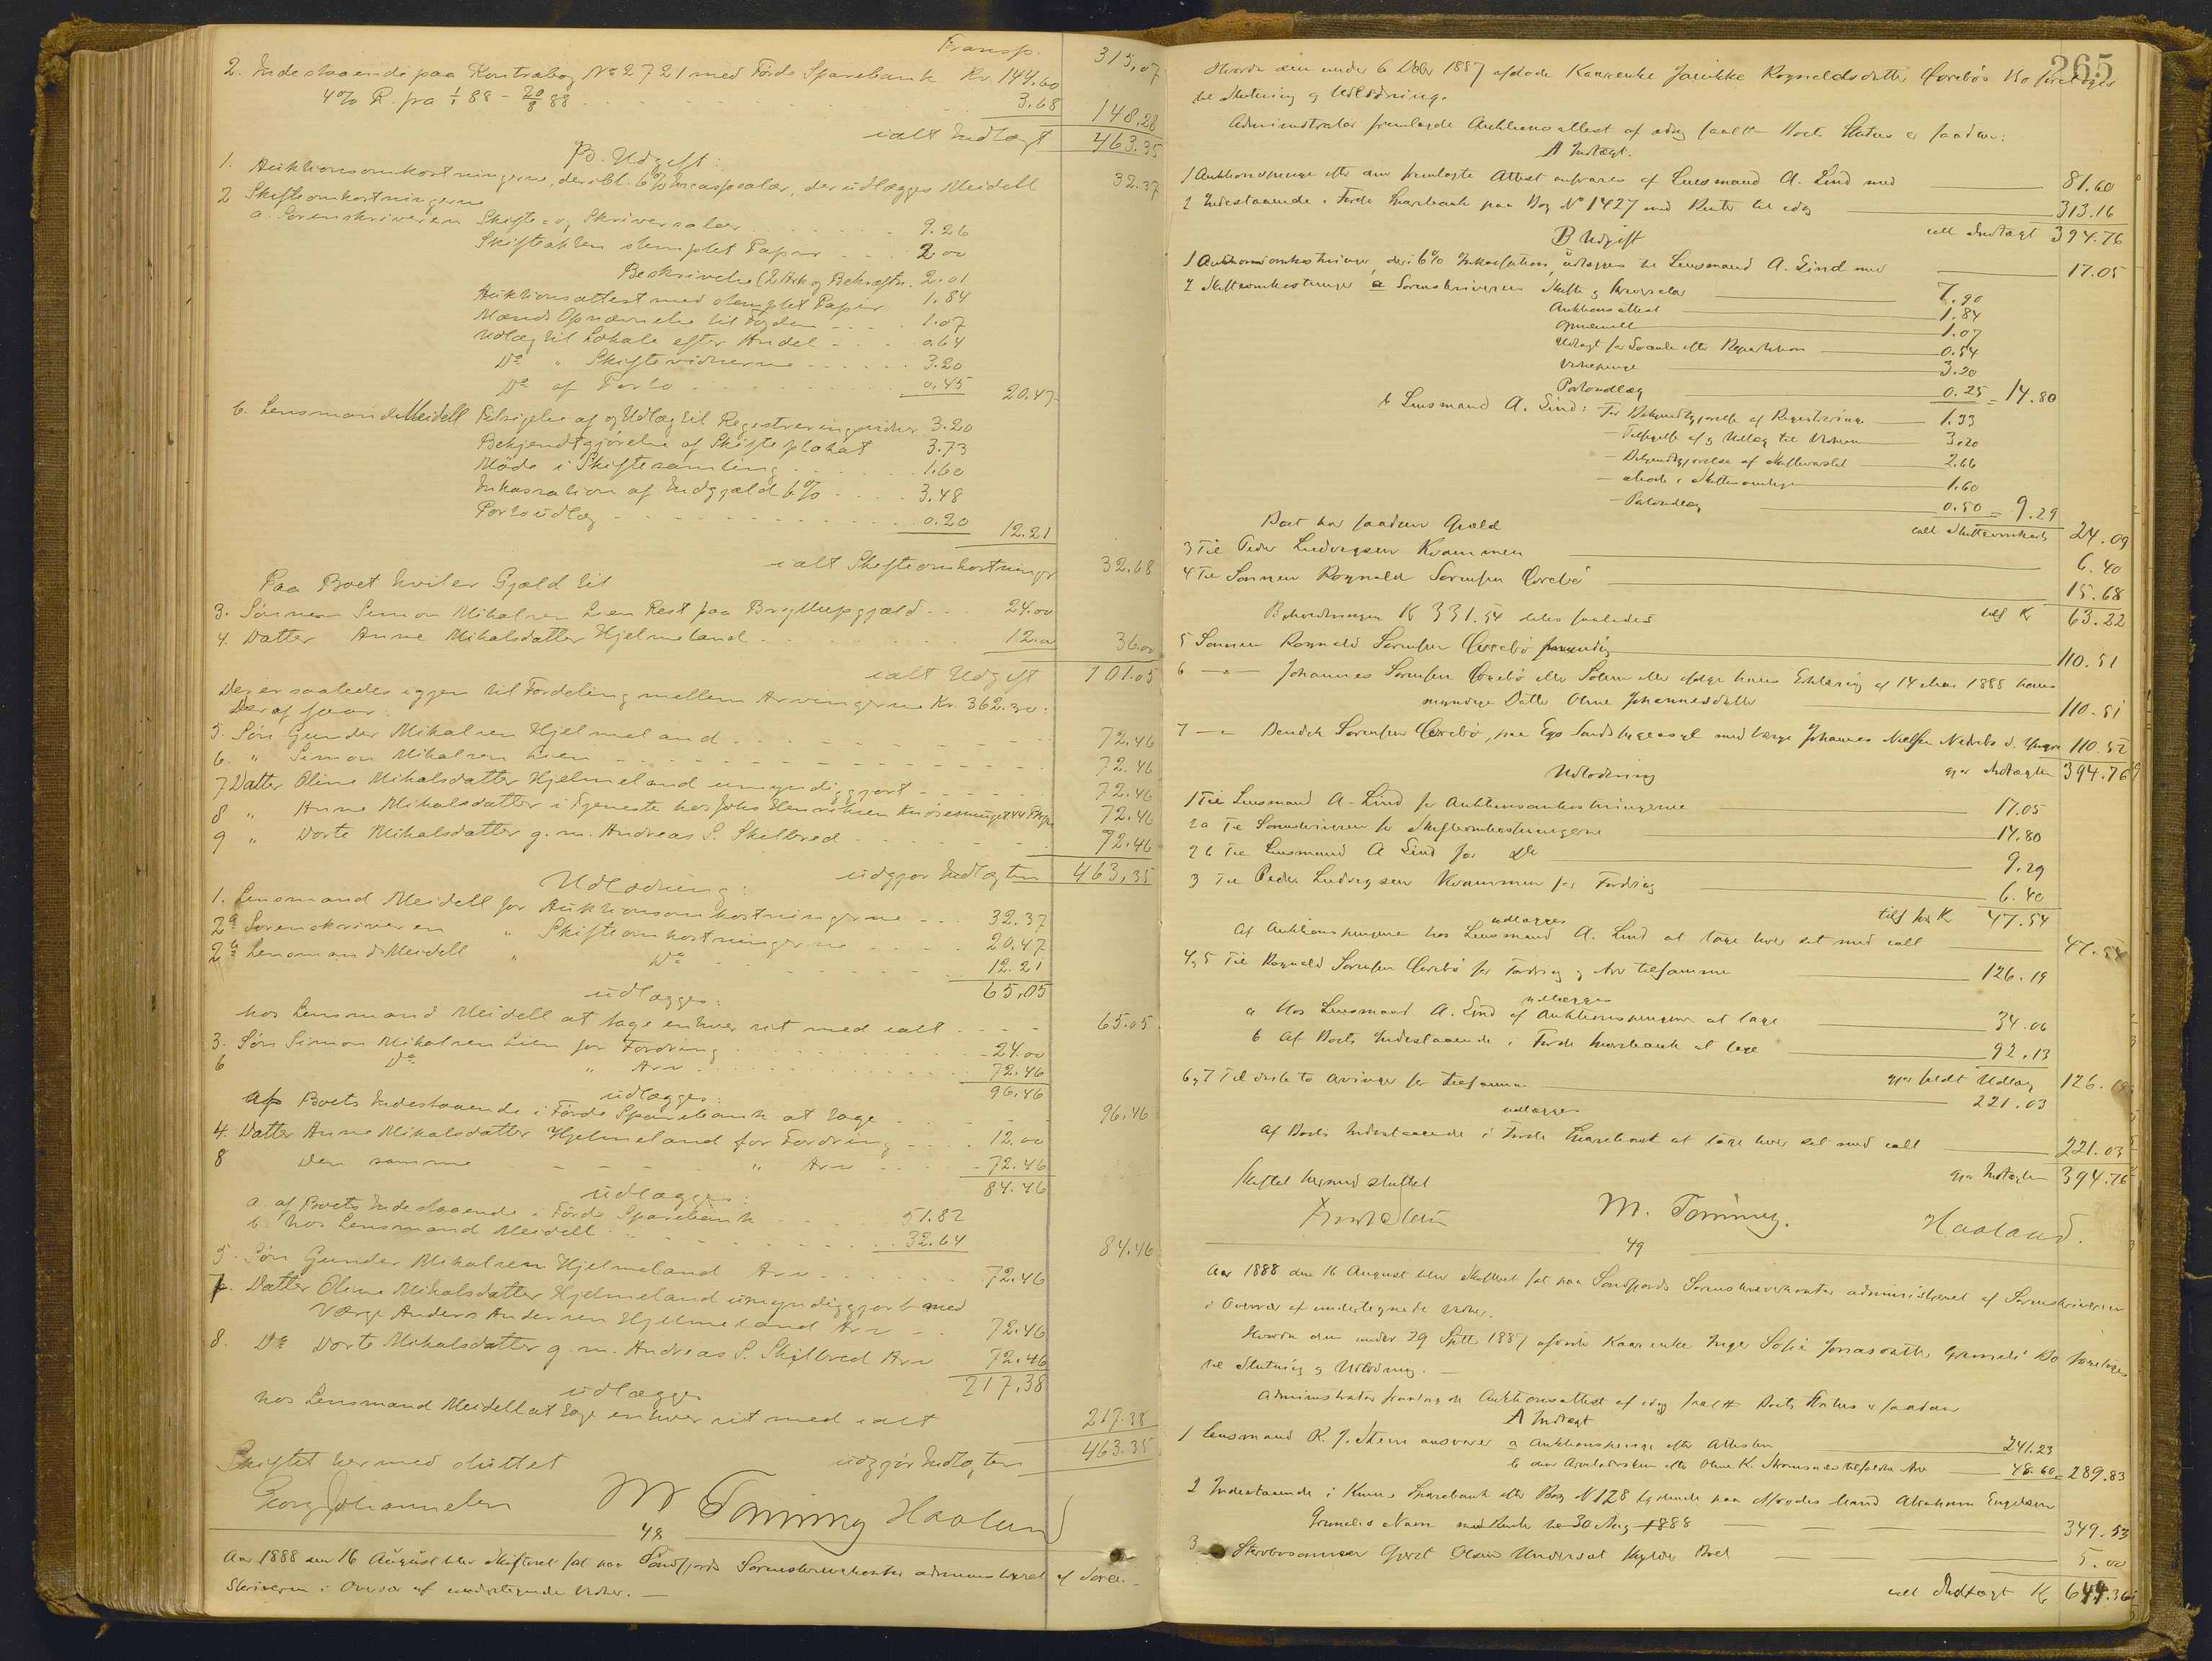 Transp. 315,07
2. Indestaaende paa Kontrabog No 2721 med Förde Sparebank Kr. 144.60
4% R. fra 1/1 88 - 20/8 88 3.68 148,28
ialt Indtægt 463.35
B. Udgift:
1. Auktionsomkostningerne, deribl. 6% Incassosalær, der udlægges Meidell 32.37
2 Skifteomkostningerne
a. Sorenskriveren Skifte- og Skriversalær 9.26
Skifteakten stemplet Papir 2.00
Beskrivelse (2 Ark og Bekræftn. 2.01
Auktionsattest med stemplet Papir 1.84
Mænds Opnævnelse til Fogden 1.07
Udlæg til Lokale efter Andel 0.64
Do " Skiftevidnerne 3.20
Do af Porto 0.45 20.47
b. Lensmand Meidell Tilsigelse af og Udlæg til Registreringsvidner 3.20
Bekjendtgjörelse af Skifteplakat 3.73
Möde i Skiftesamling 1.60
Inkassation af Indgjæld 6% 3.48
Portoudlæg 0.20 12.21
ialt Skifteomkostninger 32.68
Paa Boet hviler Gjæld til
3. Sönnen Simon Mikalsen Lien Rest paa Bryllupsgjæld 24.00
4. Datter Anne Mikalsdatter Hjelmeland 12.00 36.00
ialt Udgift 101.05
Der er saaledes igjen til Fordeling mellem Arvingerne Kr. 362.30:
Deraf faar:
5. Sön Gunder Mikalsen Hjelmeland 72.46
6. " Simon Mikalsen Lien 72.46
7 Datter Oline Mikalsdatter Hjelmeland umyndiggjort 72.46
8 " Anne Mikalsdatter i Tjeneste hos Johs Henriksen 72.46
9 " Dorte Mikalsdatter g. m. Andreas S. Skilbred 72.46
udgjør Indtægten 463,35
Udlodning:
1. Lensmand Meidell for Auktionsomkostningerne 32.37
2a Sorenskriveren " Skifteomkostningerne 20.47
2b Lensmand Meidell " Do 12.21
65,05
udlægges:
hos Lensmand Meidell at tage enhver sit med ialt 65.05
3. Sön Simon Mikalsen Lien for Fordring 24.00
6 Do " Arv 72.46
96.46
udlægges:
af Boets Indestaaende i Förde Sparebank at tage 96.46
4. Datter Anne Mikalsdatter Hjelmeland for Fordring 12.00
8 Den samme " Arv 72.46
84.46
udlægges:
a. af Boets Indestaaende i Förde Sparebank 51.82
b. hos Lensmand Meidell 32.64 84.46
5. Sön Gunder Mikalsen Hjelmeland Arv 72.46
7. Datter Oline Mikalsdatter Hjelmeland umyndiggjort med
Værge Anders Andersen Hjelmeland Arv 72.46
8. Do Dorte Mikalsdatter g. m. Andreas S. Skilbred Arv 72.46
217,38
udlægges
hos Lensmand Meidell at tage enhver sit med ialt 217.38
udgjør Indtægten 463.35
Skiftet hermed sluttet
Georg Johannesen M Tønning Haaland
48
Aar 1888 den 16 August blev Skifteret sat paa Søndfjords Sorenskriverkontor administreret af Soren-
skriveren i Overvær af undertegnede Vidner. —
265
Hvorda den under 6 Debr 1887 afdøde Kaarenke Jarikke Rognaldsdatter Bo foretoges
til Slutning og Udlodning.
Administrator fremlagde Auktionsattest af idag saalt Boets Status er saadan:
A Indtægt.
1 Auktionspenge efter den fremlagte Attest ansvares af Lensmand A. Lind med 81.60
2 Indestaaende i Førde Sparebank paa Bog No 1427 med Renter til idag 313.16
ialt Indtægt 394.76
B Udgift
1 Auktionsomkostninger, deri 6% Inkassation, udlægges til Lensmand A. Lind med 17.05
2 Skifteomkostninger a Sorenskriveren Skifte og Skriversalær 7.90
Auktionsattest 1.84
1.07
Udlagt for Locale efter Repartition 0.54
Vidnepenge 3.20
Portoudlæg 0.25 = 14.80
b Lensmand A. Lind: For Bekjendtgjørelse af Registrering 1.33
— Tilsigelse af og Udlæg til Vidnerne 3.20
— Bekjendtgjørelse af Skiftevarsel 2.66
— Møde i Skiftesamlingen 1.60
— Portoudlæg 0.50 = 9.29
ialt Skifteomkost 24.09
Boet har saadan Gjæld
3 Til Peder Ludvigsen Kvammen 6.40
4 Til Sønnen Rognald Sørensen 15.68
tils Kr 63.22
Beholdningen Kr 331.54 deles saaledes
5 Sønnen Rognald Sørensen 110.51
6 — " — Johannes Sørensen eller Solem eller ifølge hans Erklæring af 14 1888 hans
myndige Datter Oline Johannesdatter 110.51
7 — " Bendik Sørensen, paa Eg Sindssygeasyl med Værge Johannes Nielsen 110.52
gjør Indtægten 394.76
Udlodning
1 Til Lensmand A. Lind for Auktionsomkostningerne 17.05
2a Til Sorenskriveren for Skifteomkostningerne 14.80
2b Til Lensmand A Lind for Do 9.29
3 Til Peder Ludvigsen Kvammen for Fordring 6.40
tils Kr 47.54
udlægges
Af Auktionspengene hos Lensmand A. Lind at tage hver sit med ialt 47.54
4 og 5 Til Rognald Sørensen for Fordring og Arv tilsammen 126.19
udlægges
a Hos Lensmand A. Lind af Auktionspengene at tage 34.06
b Af Boets Indestaaende i Førde Sparebank at tage 92.13
gjør fuldt Udlæg 126.19
6 og 7 Til disse to Arvinger for tilsammen 221.03
udlægges
Af Boets Indestaaende i Førde Sparebank at tage hver sit med ialt 221.03
gjør Indtægten 394.76
Skiftet hermed sluttet
M. Tønning. Haaland.
49
Aar 1888 den 16 August blev Skifteret sat paa Søndfjords Sorenskriverkontor administreret af Sorenskriveren
i Overvær af undertegnede Vidner.
Hvorda den under 29 Septbr 1887 afdøde Kaarenke Inger Sofie Jonasdatter Bo foretoges
til Slutning og Udlodning. —
Administrator fremlagde Auktionsattest af idag saalt Boets Status er saadan
A Indtægt
1 Lensmand R. J. Stein ansvarer a Auktionspenge efter Attesten 241.23
b 48.60 = 289.83
2 Indestaaende i Kinns Sparebank efter Bog No 128 lydende paa Afdødes Mand Abraham Engelsen
Navn med Rente til 30 Aug 1888 349.53
3 Gjert Olsen skylder Boet 5.00
ialt Indtægt Kr 644.36